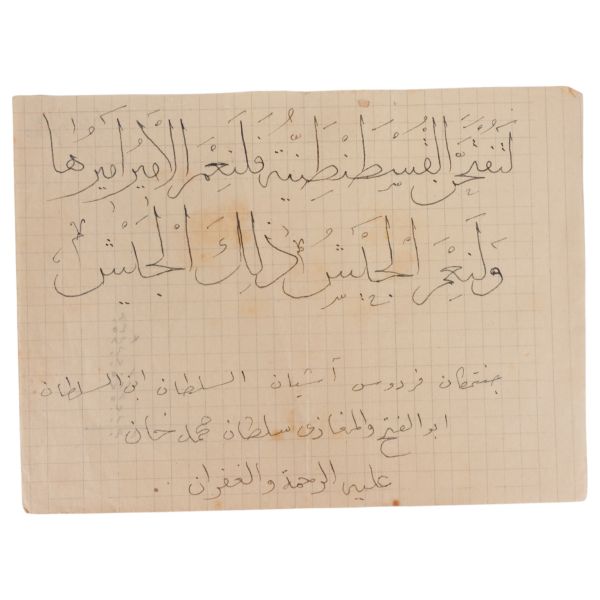 لَتُفْتَحَنَّ القُسْطَنْطِنِيَّةُ فَلَنِعْمَ الْأَمِيرُ أَمِيرُهَا
وَلَنِعْمَ الْجَيْشُ ذٰلِكَ الْجَيْشُ
جنتمكان فردوس آشيان السلطان ابن السلطان
ابو الفتح والمغازى سلطان محمد خان
عليه الرحمة والغفران